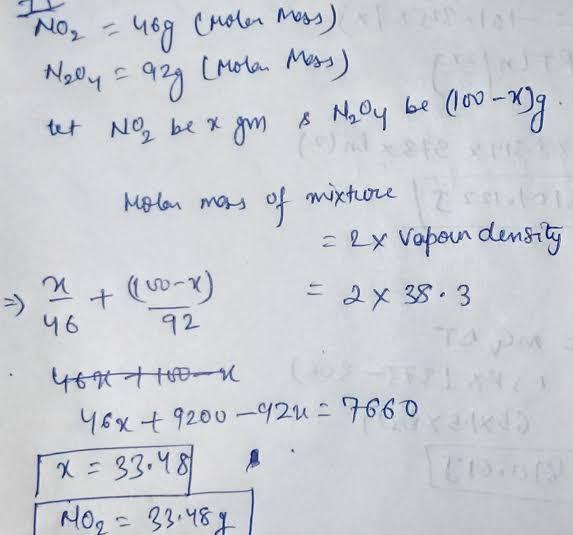 NO₂ = 46g (Molar Mass)
N₂O₄ = 92g (Molar Mass)
let NO₂ be x gm & N₂O₄ be (100-x)g.
Molar mass of mixture
= 2 x Vapour density
⇒ x/46 + (100-x)/92 = 2 x 38.3
46x + 100 - x
46x + 9200 - 92x = 7660
x = 33.48
NO₂ = 33.48g